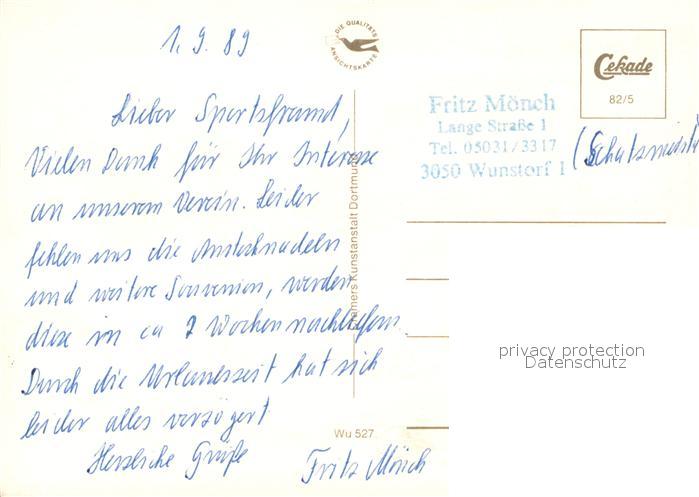 1.9.89
DIE QUALITÄTS
ANSICHTSKARTE
Cekade
82/5
Fritz Mönch
Lange Straße 1
Tel. 05031/3317
3050 Wunstorf 1
(Schatzmeister
Lieber Sportsfreund,
Vielen Dank für Ihr Interesse
an unserem Verein. Leider
fehlen uns die Anstecknadeln
und weitere Souvenirs, werden
diese in ca 2 Wochen nachliefern.
Durch die Urlaubszeit hat sich
leider alles verzögert
Herzliche Grüße
Fritz Mönch
Kunstanstalt Dortmund
Wu 527
privacy protection
Datenschutz